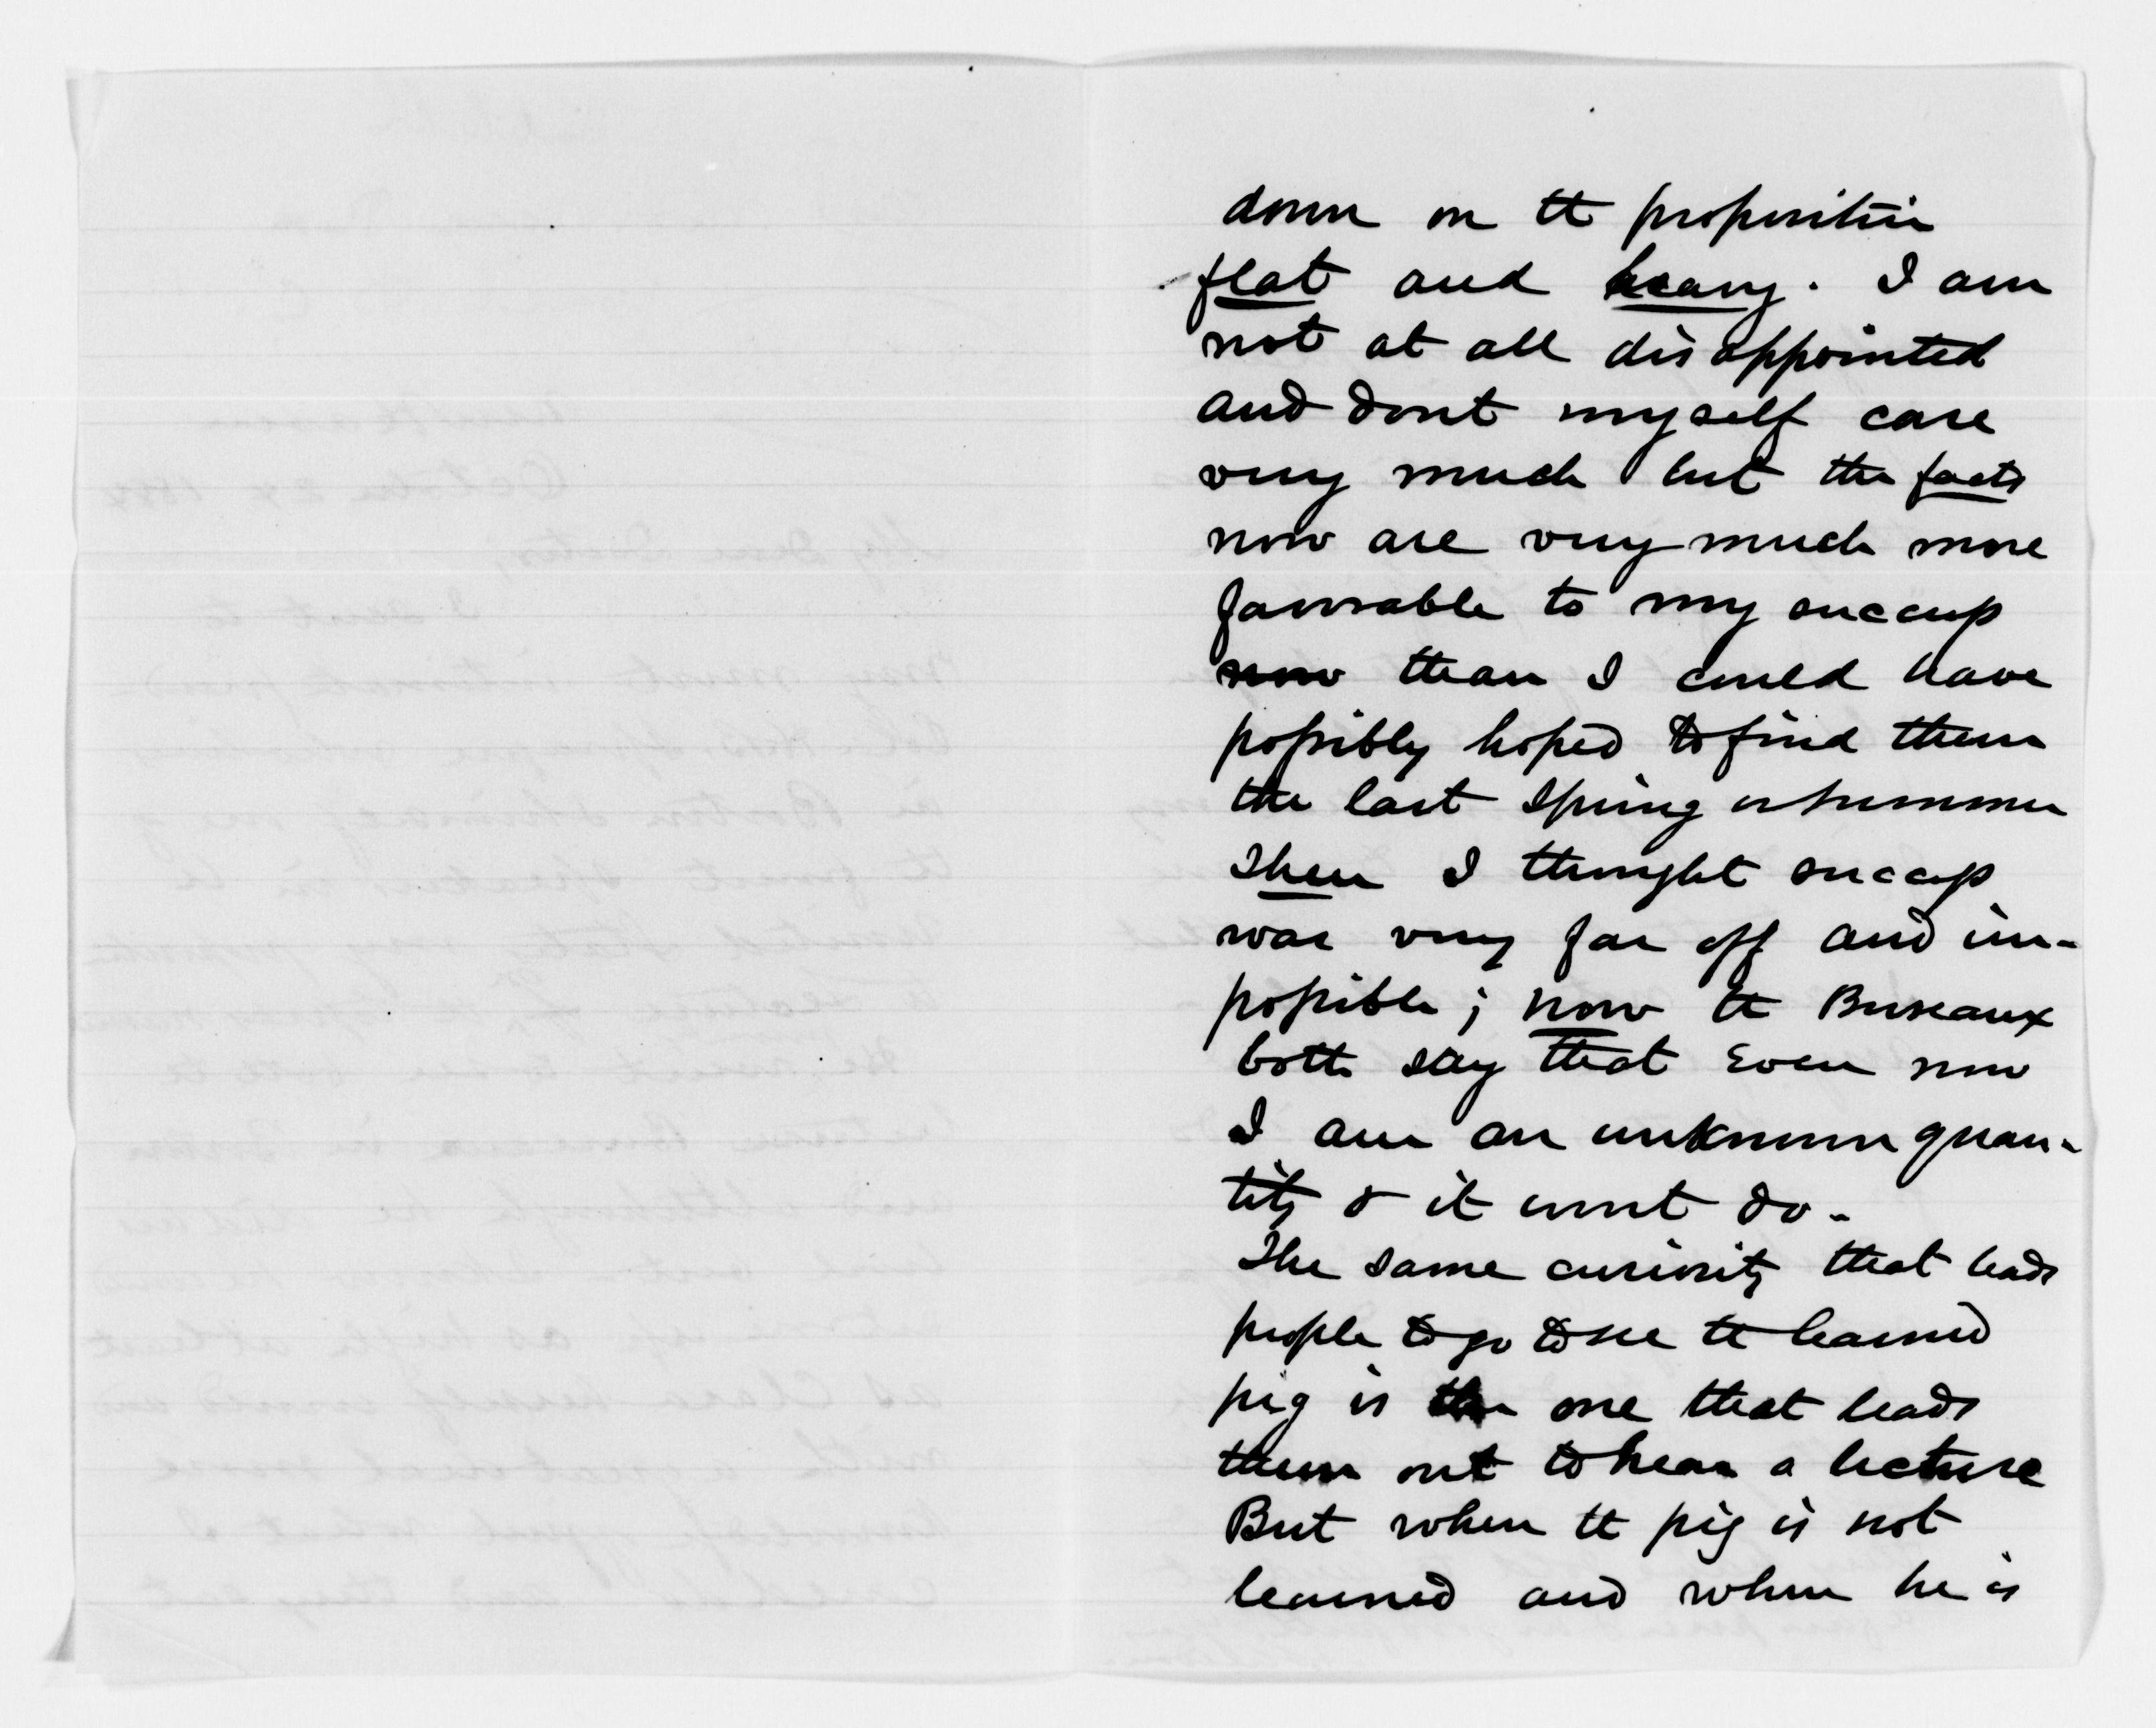 down on the proposition
flat and heavy. I am
not at all disappointed
and dont myself care
very much but the facts
now are very much more
favorable to my success
now than I could have
possibly hoped to find them
the last Spring or summer
Then I thought success
was very far off and im-
possible; now the Bureaux
both say that even now
I am an unknown quan-
tity & it wont do.
The same curiosity that leads
people to go to see the learned
pig is the one that leads
them out to hear a lecture
But when the pig is not
learned and when he is